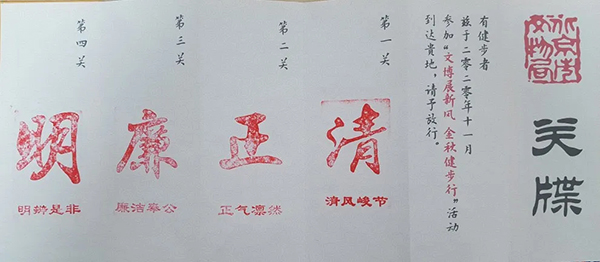 北京市
文物局
关牒
有健步者
兹于二零二零年十一月
参加“文博展新风 金秋健步行”活动
到达贵地，请予放行。
第一关
清
清风峻节
第二关
正
正气凛然
第三关
廉
廉洁奉公
第四关
明
明辨是非